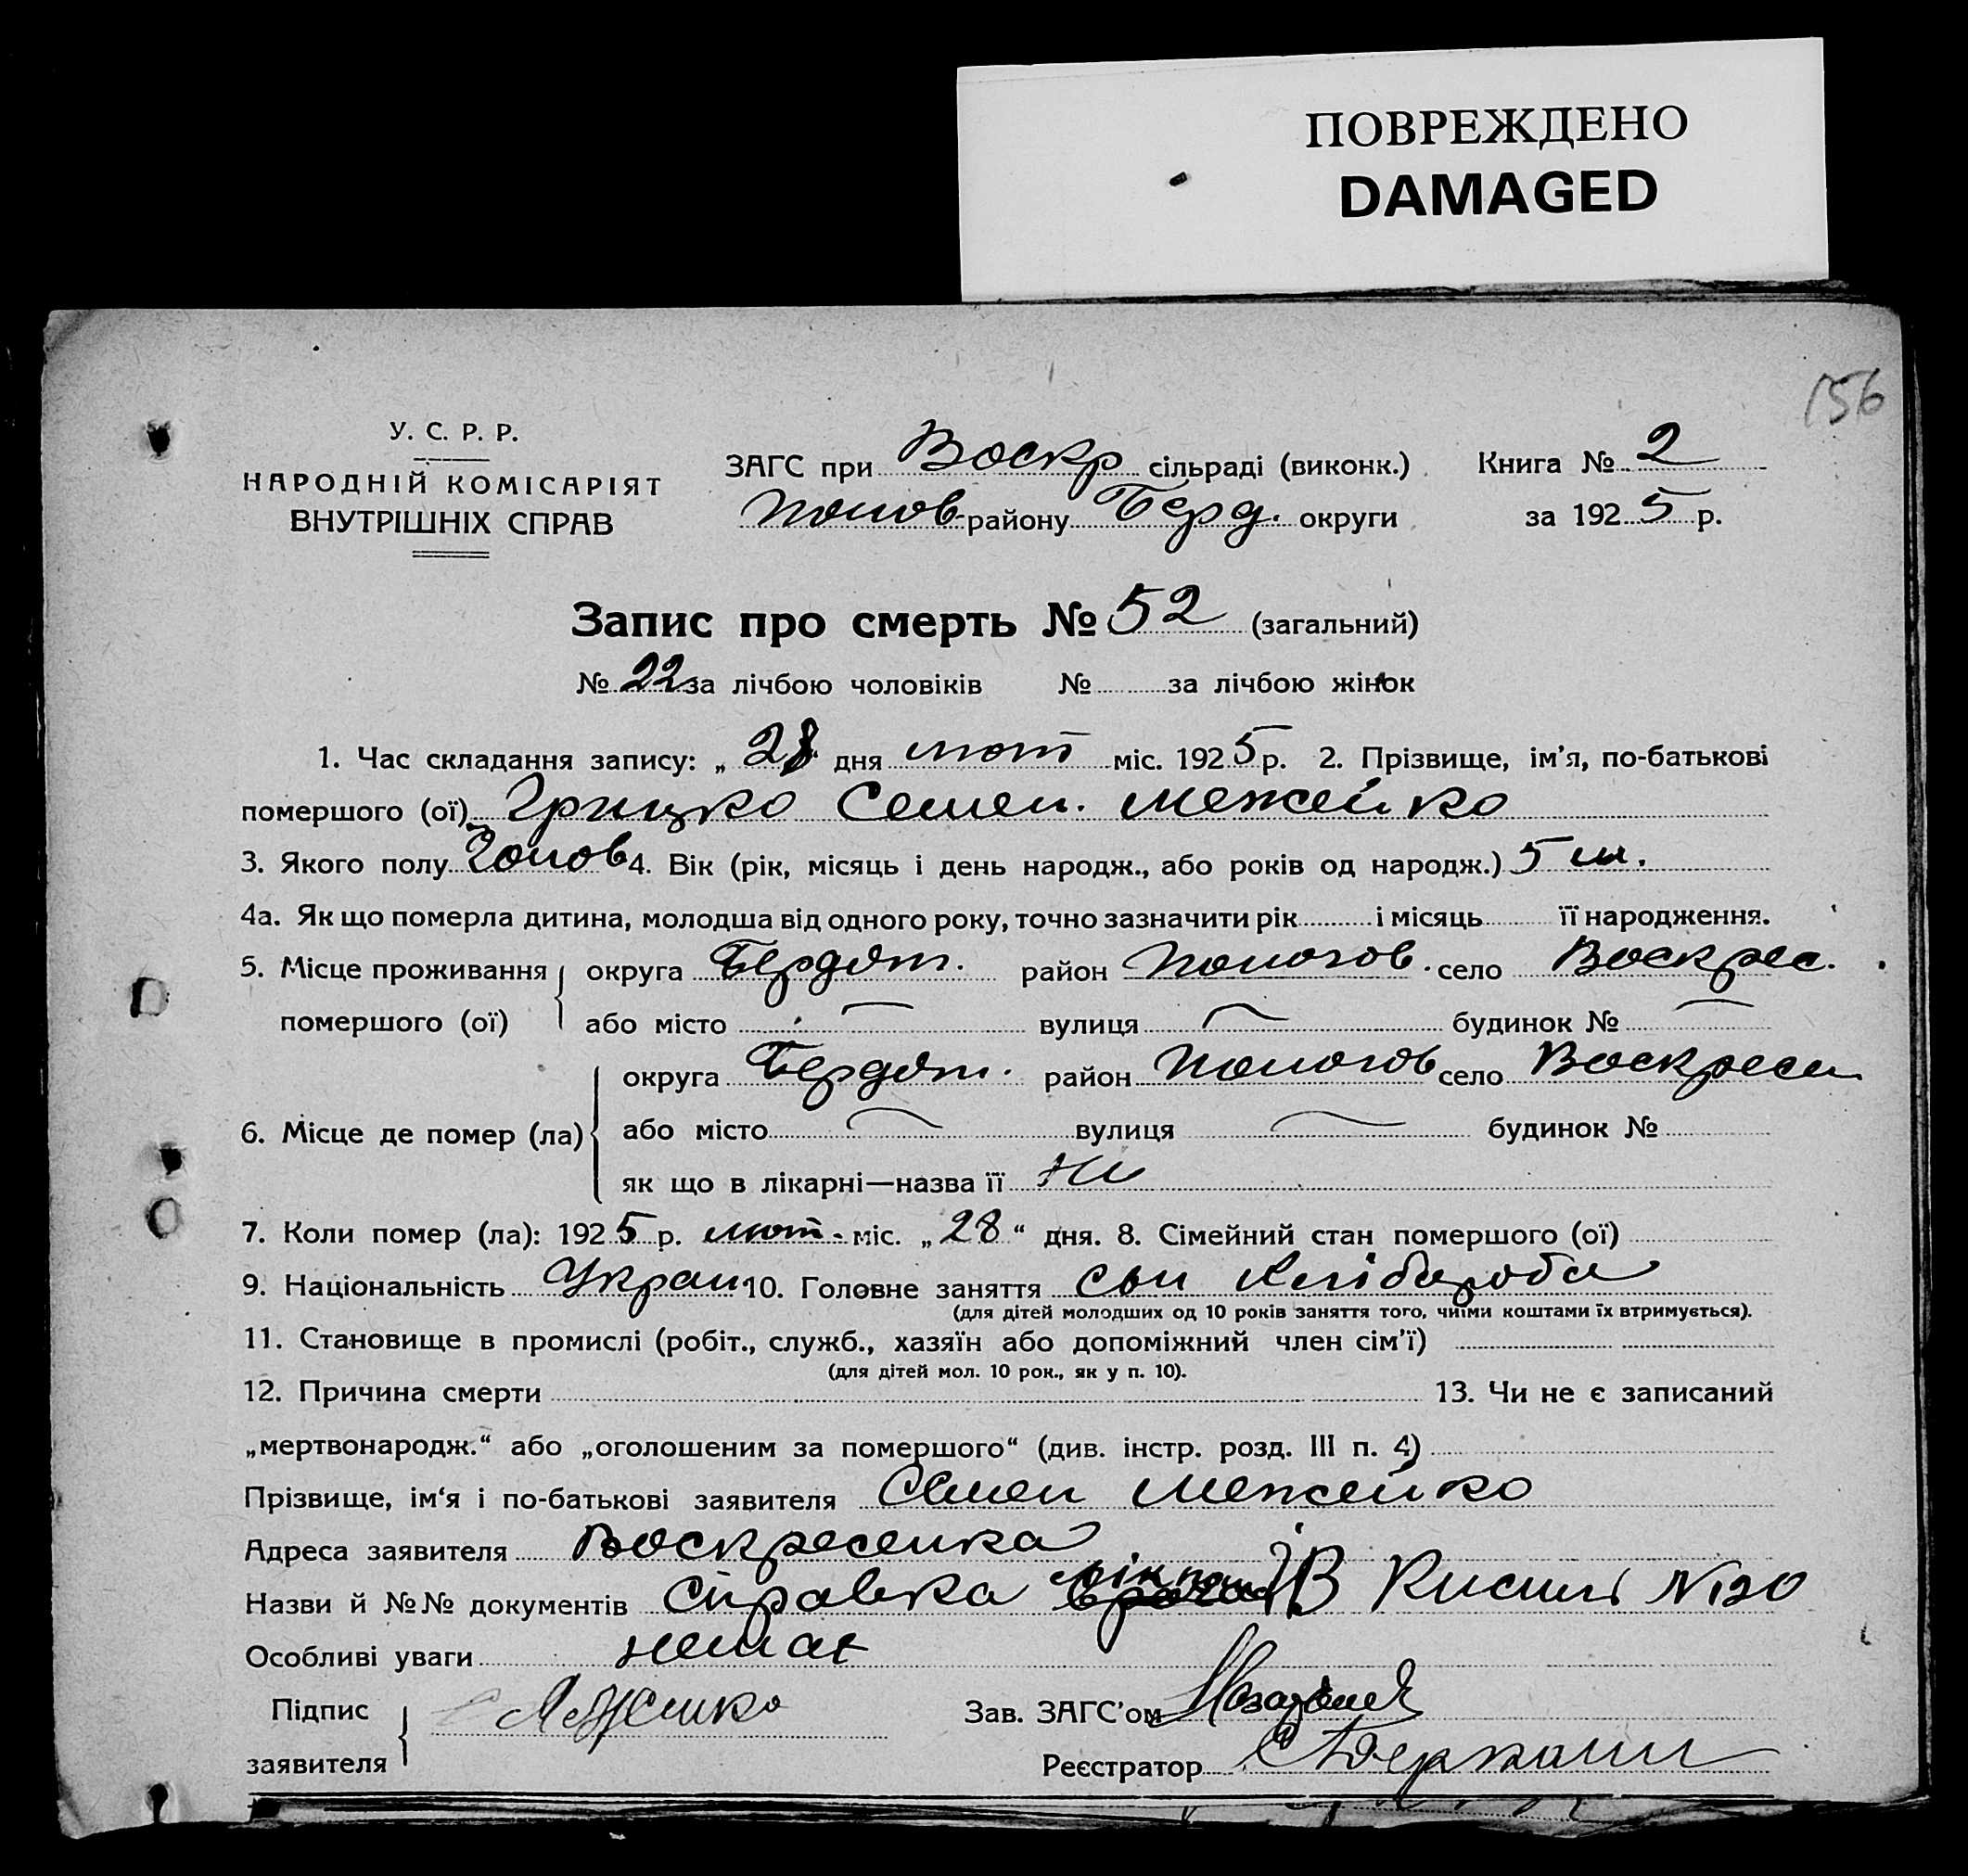 ПОВРЕЖДЕНО
DAMAGED
156
У. С. Р. Р.
НАРОДНІЙ КОМІСАРІЯТ
ВНУТРІШНІХ СПРАВ
ЗАГС при Воскр сільраді (виконк.) Книга № 2
Полов району Берд. округи за 1925 р.
Запис про смерть № 52 (загальний)
№ 22 за лічбою чоловіків № за лічбою жінок
1. Час складання запису: „28 дня лют міс. 1925 р. 2. Прізвище, ім'я, по-батькові
помершого (ої) Грицко Семен. Межейко
3. Якого полу Чолов 4. Вік (рік, місяць і день народж., або років од народж.) 5 м.
4а. Як що померла дитина, молодша від одного року, точно зазначити рік і місяць її народження.
5. Місце проживання помершого (ої) округа Бердят. район Пологов. село Воскрес.
або місто вулиця будинок №
6. Місце де помер (ла) округа Бердят. район Пологов село Воскресен
або місто вулиця будинок №
як що в лікарні—назва її Ні
7. Коли помер (ла): 1925 р. лют. міс. „28“ дня. 8. Сімейний стан помершого (ої)
9. Національність Украин 10. Головне заняття сын хлібороба
(для дітей молодших од 10 років заняття того, чиїми коштами їх втримується).
11. Становище в промислі (робіт., служб., хазяїн або допоміжний член сім'ї)
(для дітей мол. 10 рок., як у п. 10).
12. Причина смерти 13. Чи не є записаний
„мертвонародж.“ або „оголошеним за помершого“ (див. інстр. розд. III п. 4)
Прізвище, ім'я і по-батькові заявителя Семен Межейко
Адреса заявителя Воскресенка
Назви й №№ документів Справка В №20
Особливі уваги немає
Підпис заявителя Зав. ЗАГС'ом
Реєстратор